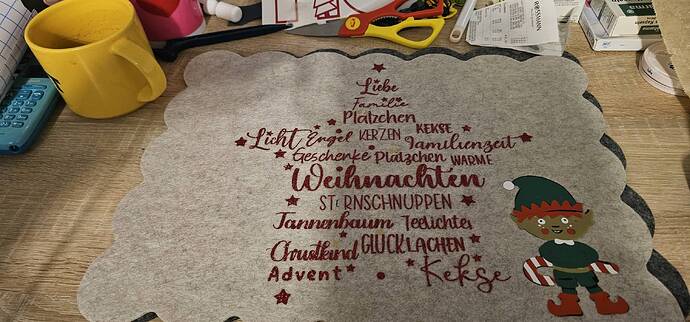 Liebe
Familie
Plätzchen
Licht Engel KERZEN KEKSE Familienzeit
Geschenke Plätzchen WÄRME
Weihnachten
STERNSCHNUPPEN
Tannenbaum Teelichter
Christkind GLÜCK LACHEN
Advent Kekse
ROSSMANN